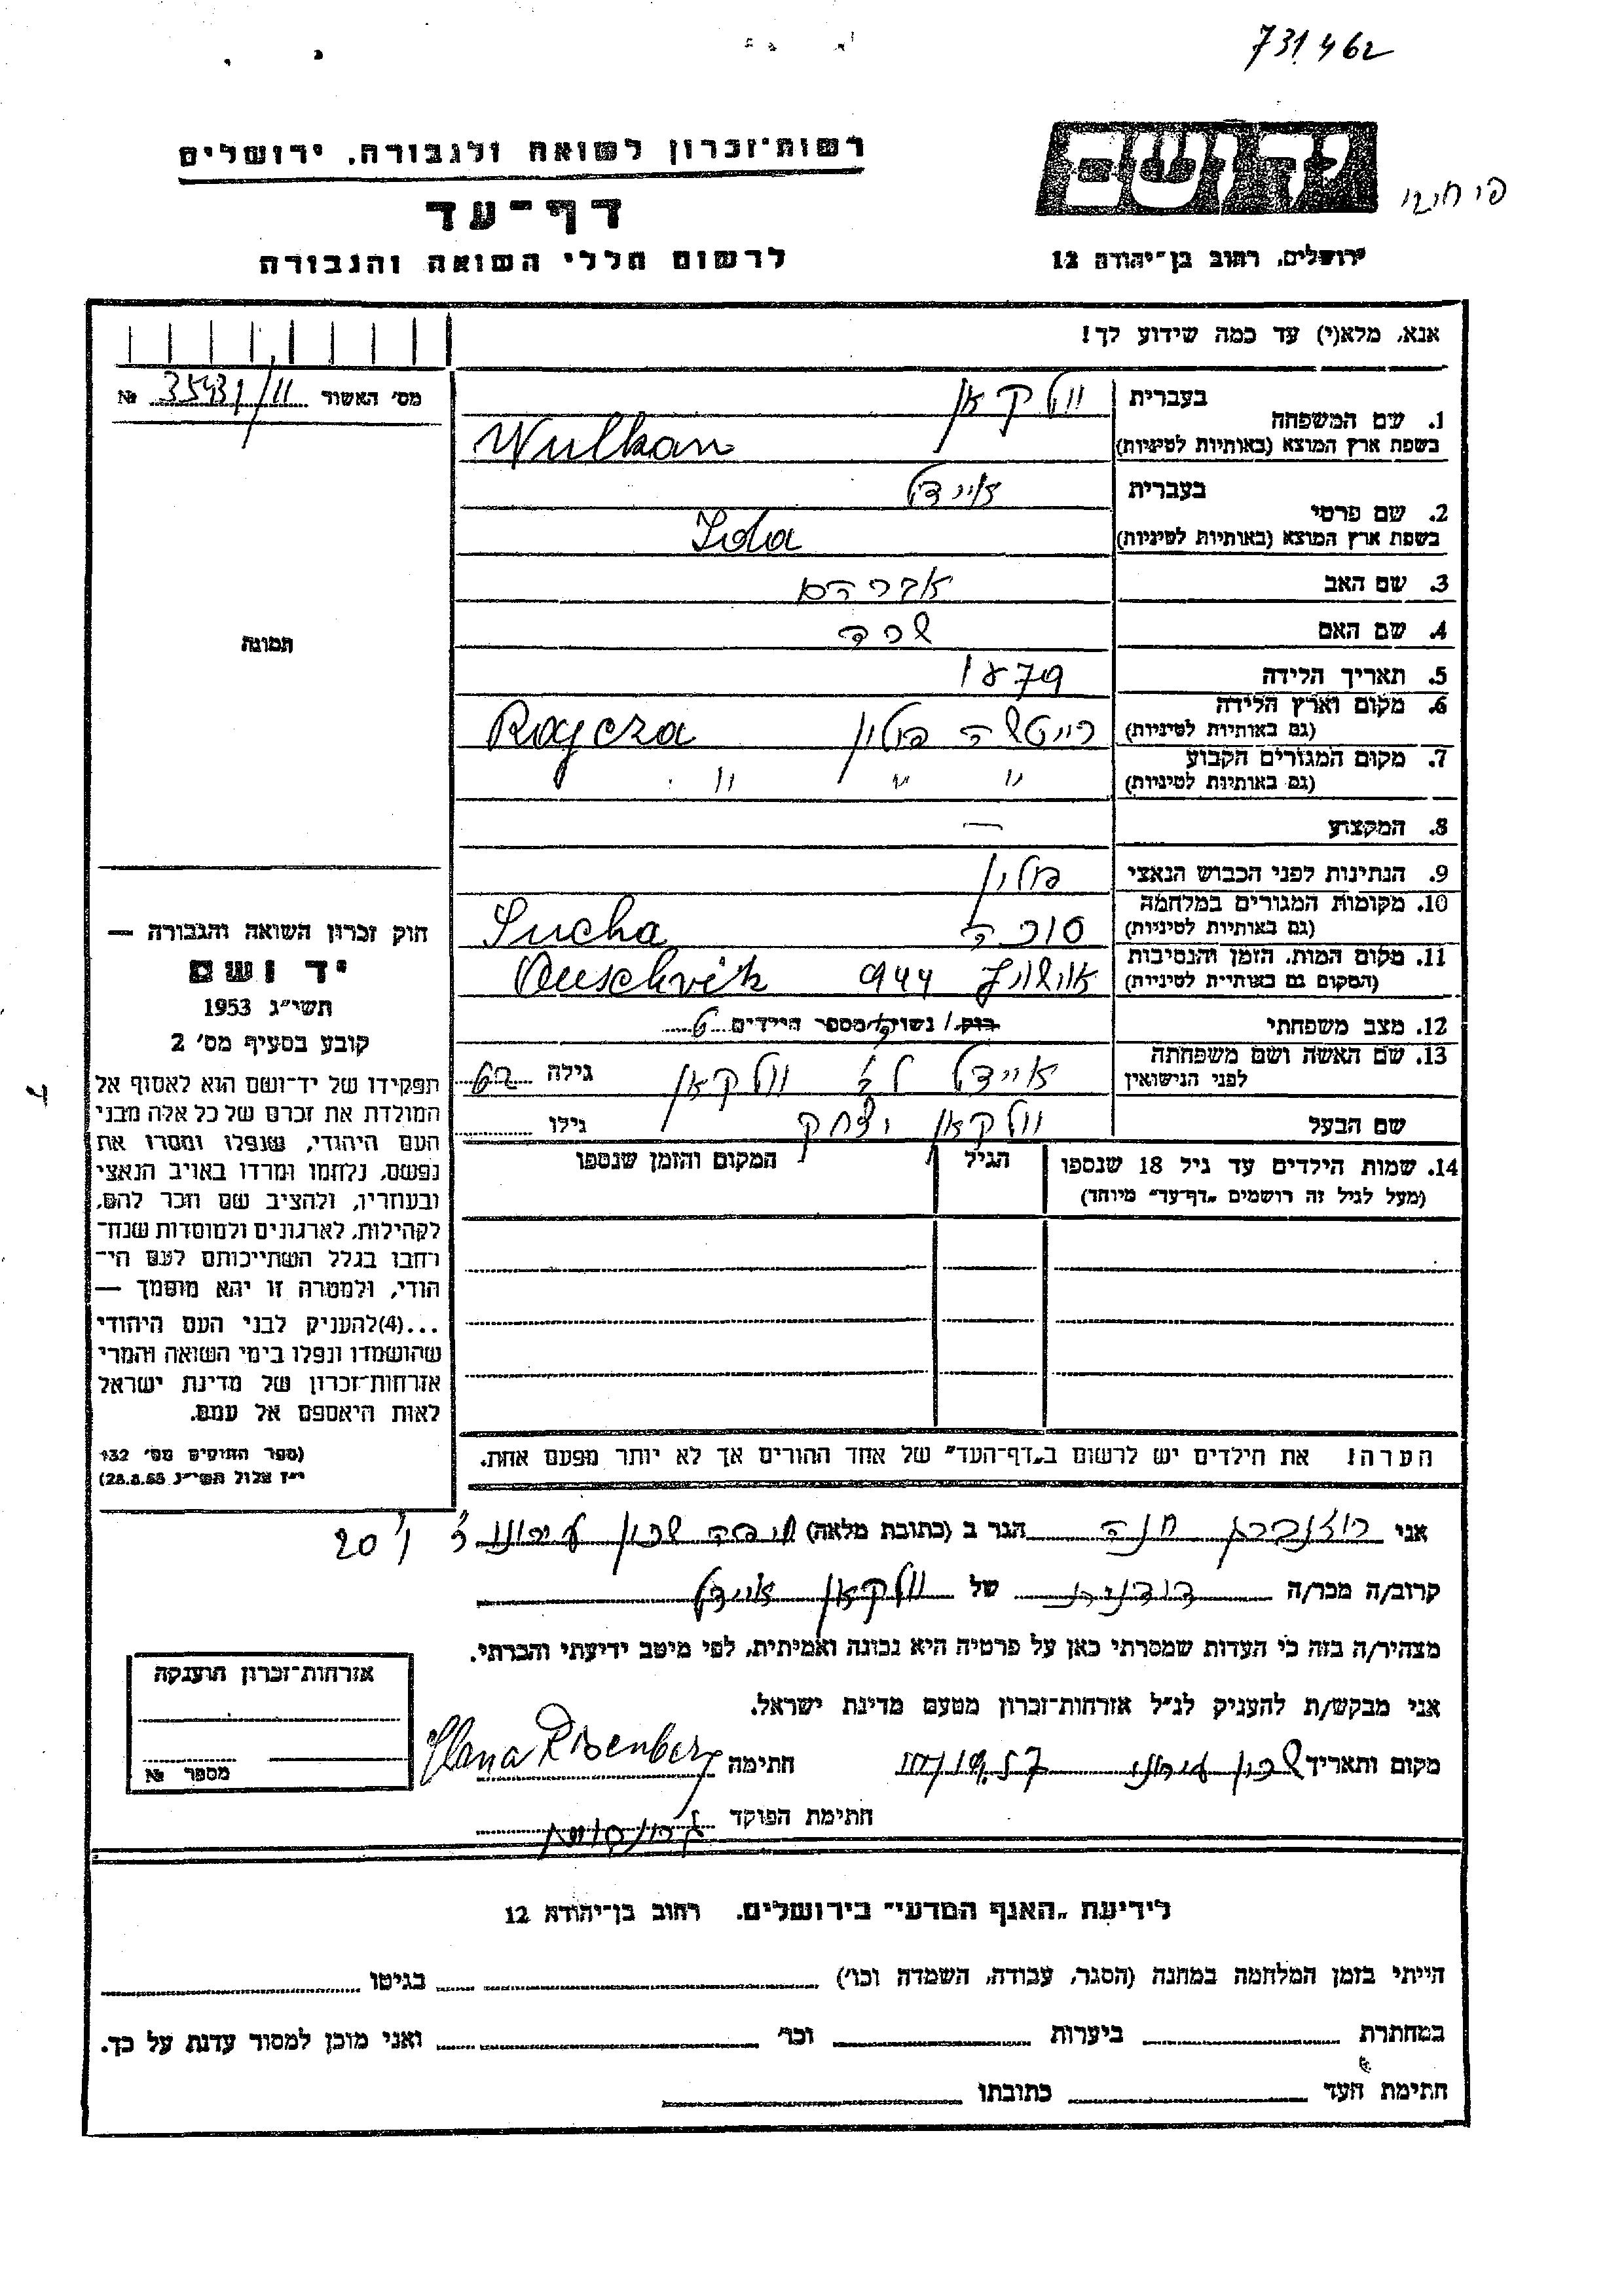 731462
רשות־זכרון לשואה ולגבורה, ירושלים
יד ושם
דף־עד
ירושלים, רחוב בן־יהודה 12
לרשום חללי השואה והגבורה
אנא, מלא(י) עד כמה שידוע לך!
מס׳ האשור 35431/11 №
1. שם המשפחה
בעברית וולקאן
בשפת ארץ המוצא (באותיות לטיניות) Wulkan
2. שם פרטי
בעברית איידל
בשפת ארץ המוצא (באותיות לטיניות) Ida
3. שם האב אברהם
4. שם האם שרה
תמונה
5. תאריך הלידה 1879
6. מקום וארץ הלידה
(גם באותיות לטיניות) רייטשה פולין Rajcza
7. מקום המגורים הקבוע
(גם באותיות לטיניות) " " "
8. המקצוע —
9. הנתינות לפני הכבוש הנאצי פולין
10. מקומות המגורים במלחמה
(גם באותיות לטיניות) סוכה Sucha
11. מקום המות, הזמן והנסיבות
(המקום גם באותיות לטיניות) אושוויץ 944 Auschvitz
12. מצב משפחתי רוק/ נשוי/ מספר הילדים 6
13. שם האשה ושם משפחתה
לפני הנישואין איידל לב׳ וולקאן גילה 62
שם הבעל וולקאן יצחק גילו
14. שמות הילדים עד גיל 18 שנספו
(מעל לגיל זה רושמים „דף־עד" מיוחד)
הגיל
המקום והזמן שנספו
חוק זכרון השואה והגבורה —
יד ושם
תשי״ג 1953
קובע בסעיף מס׳ 2
תפקידו של יד־ושם הוא לאסוף אל
המולדת את זכרם של כל אלה מבני
העם היהודי, שנפלו ומסרו את
נפשם, נלחמו ומרדו באויב הנאצי
ובעוזריו, ולהציב שם וזכר להם,
לקהילות, לארגונים ולמוסדות שנח־
רבו בגלל השתייכותם לעם הי־
הודי, ולמטרה זו יהא מוסמך —
...(4)להעניק לבני העם היהודי
שהושמדו ונפלו בימי השואה והמרי
אזרחות־זכרון של מדינת ישראל
לאות היאספם אל עמם.
(ספר החוקים מס׳ 132
י״ז אלול תשי״ג 28.8.53)
הערה: את הילדים יש לרשום ב„דף־העד" של אחד ההורים אך לא יותר מפעם אחת.
אני רוזנברג חנה הגר ב (כתובת מלאה) חיפה שכון עירוני
קרוב/ה מכר/ה דודנית של וולקאן איידל
מצהיר/ה בזה כי העדות שמסרתי כאן על פרטיה היא נכונה ואמיתית, לפי מיטב ידיעתי והכרתי.
אני מבקש/ת להעניק לנ״ל אזרחות־זכרון מטעם מדינת ישראל.
מקום ותאריך שכון עירוני חתימה Hana Rosenberg
חתימת הפוקד
אזרחות־זכרון הוענקה
מספר №
לידיעת „האגף המדעי" בירושלים, רחוב בן־יהודה 12
הייתי בזמן המלחמה במחנה (הסגר, עבודה, השמדה וכו׳) בגיטו
במחתרת ביערות וכו׳ ואני מוכן למסור עדות על כך.
חתימת העד כתובתו